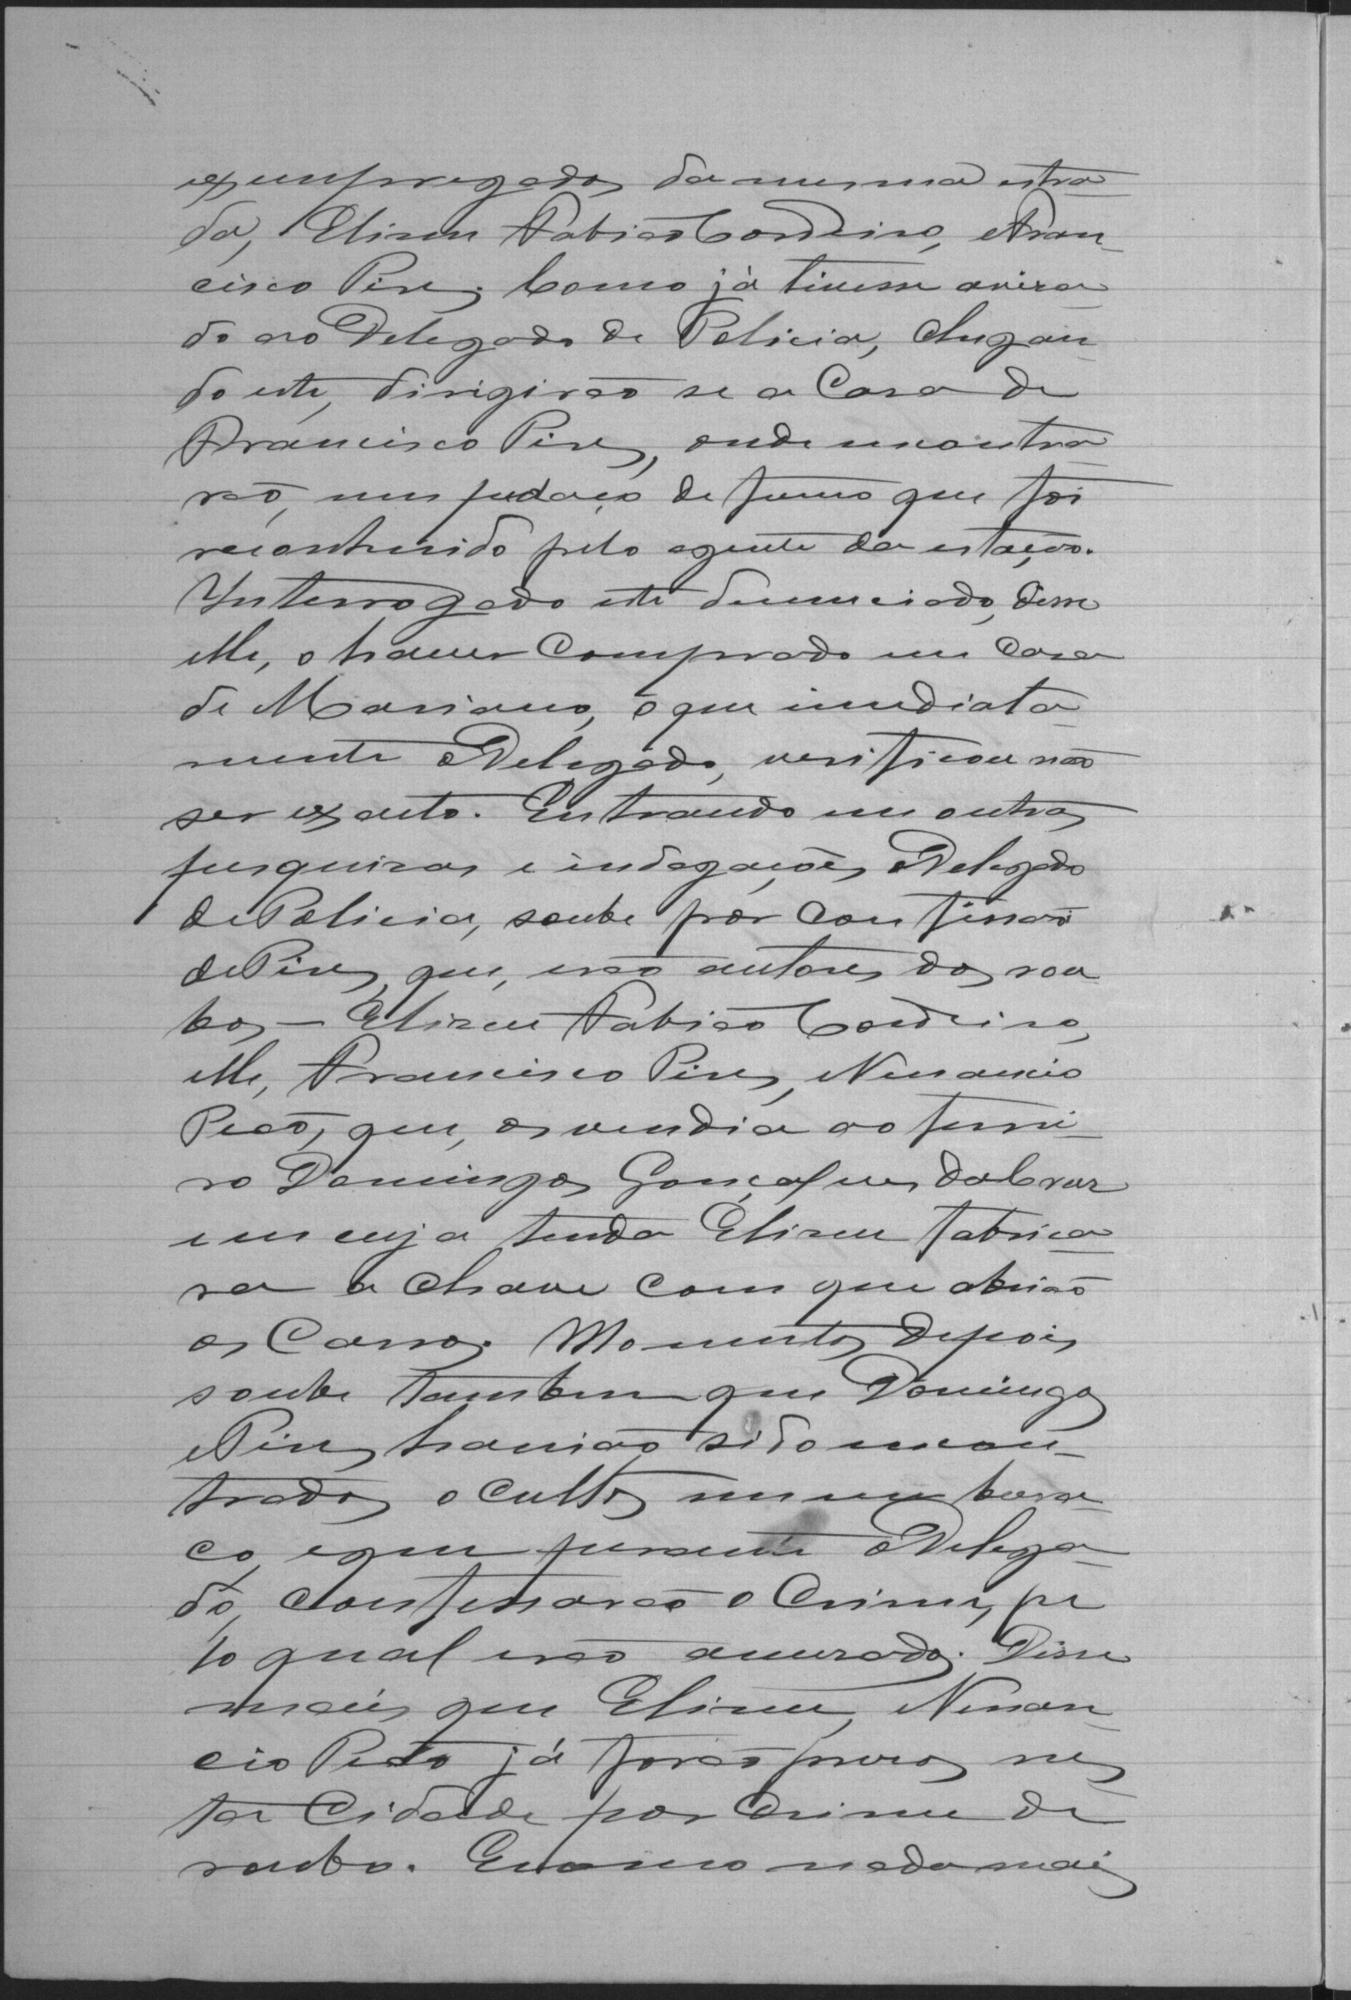 ex empregados da mesma estra-
da, Eliseu Fabião Cordeiro, e Fran-
cisco Pires. Como já tivesse avisa-
do ao Delegado de Policia, chegan-
do este, dirigirão se a Casa de
Francisco Pires, onde encontra-
rão, um pedaço de fumo que foi
reconhecido pelo agente da estação.
Interrogado este denunciado, disse
elle, o haver Comprado em Casa
de Mariano, o que immediata-
mente o Delegado, verificou não
ser exacto. Entrando em outras
pesquizas e indagações, o Delegado
de Policia, soube por Confissão
de Pires, que, erão autores dos rou-
bos — Eliseu Fabião Cordeiro,
elle, Francisco Pires, e Venancio
Peão, que, os vendia ao ferrei-
ro Domingos Gonçalves
em cuja tenda Eliseu fabrica-
ra a chave com que abrião
os Carros. Momentos depois
soube tambem que Domingos
e Pires havião sido encon-
trados occultos num barra-
co, e que perante o Delega-
do, Confessarão o Crime, pe-
lo qual erão accusados. Disse
mais que Eliseu, e Venan-
cio Peão já forão presos nes-
ta Cidade por Crime de
roubo. E como nada mais